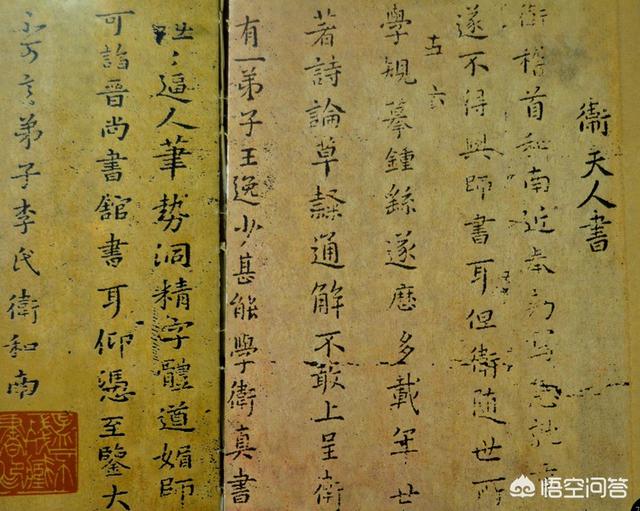 衞夫人書
衞稽首和南近奉勅寫急就章
遂不得與師書耳但衞隨世所
學規摹鍾繇遂歷多載年廿
著詩論草隸通解不敢上呈衞
有一弟子王逸少甚能學衞真書
咄咄逼人筆勢洞精字體遒媚師
可詣晉尚書館書耳仰憑至鑒大
不可言弟子李氏衞和南
悟空问答